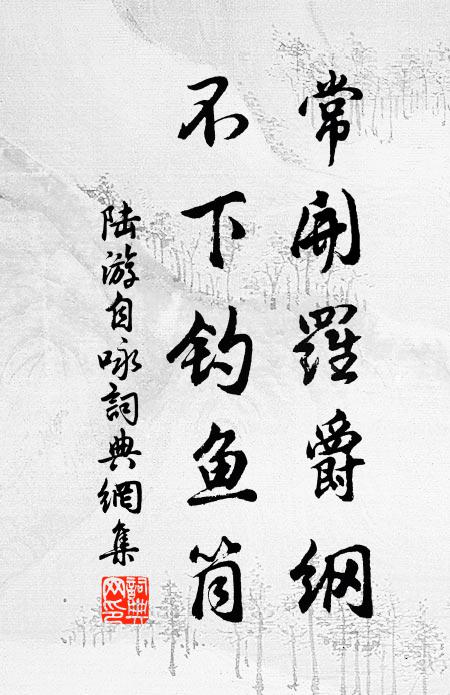 常開羅爵網
不下钓鱼筒
陆游自咏詞典網集
詞典
网印